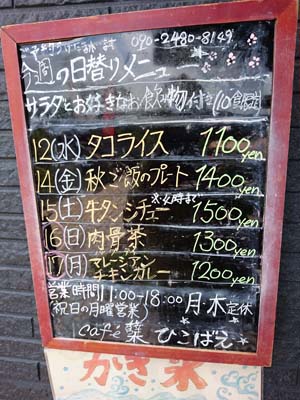 ご予約うけたまわります 090-2480-8149
今週の日替りメニュー
サラダとお好きなお飲み物付き(10食限定)
12(水) タコライス 1100yen
14(金) 秋ご飯のプレート 1400yen
15(土) 牛タンシチュー 1500yen
16(日) 肉骨茶 1300yen
17(月) マレーシアンチキンカレー 1200yen
営業時間 11:00-18:00 月・木定休
(祝日の月曜営業)
café 菜 ひこばえ
かき氷